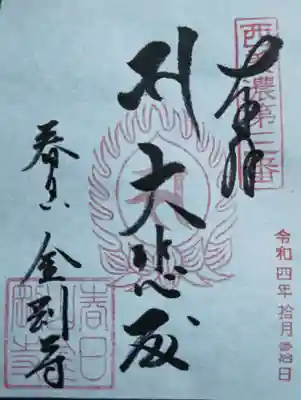 西美濃第三番
奉拝
令和四年拾月参拾日
大悲殿
春日 金剛寺
春日金剛寺